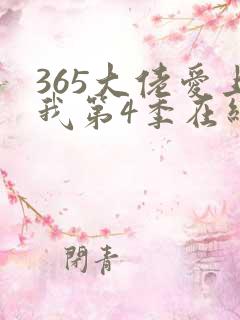 365大佬爱上
我第4季在线
閉青